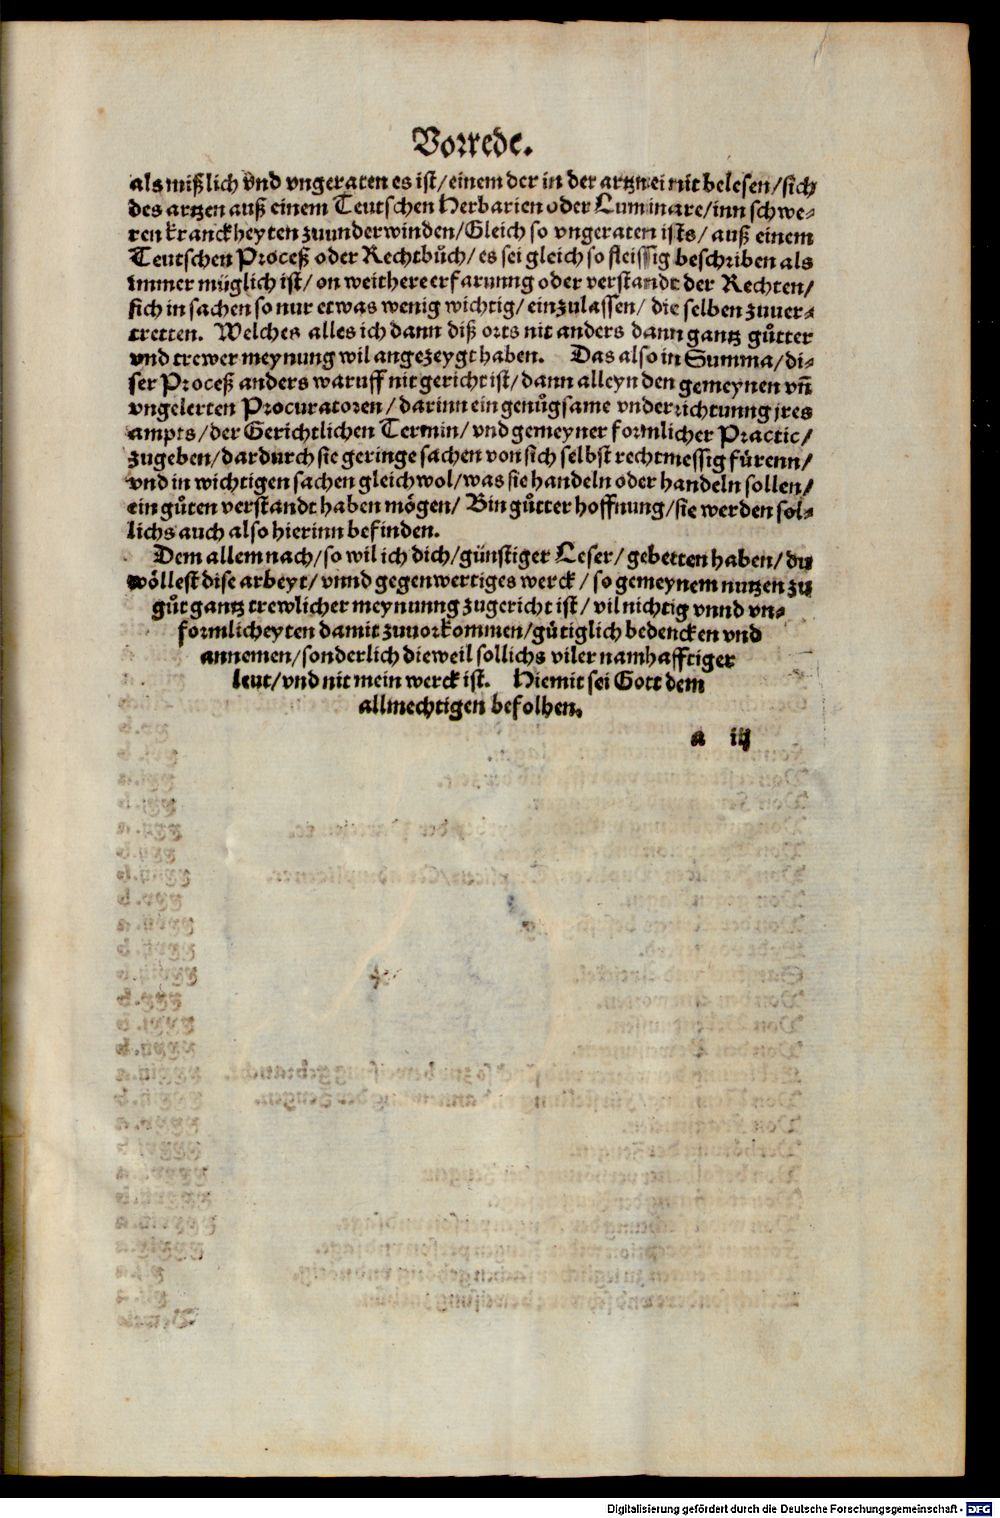 Vorrede.
als mißlich vnd vngeraten es ist/ einem der in der artznei nit belesen/ sich
des artzen auß einem Teutschen Herbarien oder Luminare/ inn schwe-
ren kranckheyten zuunderwinden/ Gleich so vngeraten ists/ auß einem
Teutschen Proceß oder Rechtbůch/ es sei gleich so fleissig beschriben als
immer müglich ist/ on weithere erfarunng oder verstandt der Rechten/
sich in sachen so nur etwas wenig wichtig/ einzulassen/ die selben zuuer-
tretten. Welches alles ich dann diß orts nit anders dann gantz gůtter
vnd trewer meynung wil angezeygt haben. Das also in Summa/ di-
ser Proceß anders waruff nit gericht ist/ dann alleyn den gemeynen vñ
vngelerten Procuratoren/ darinn ein genůgsame vnderrichtunng jres
ampts/ der Gerichtlichen Termin/ vnd gemeyner formlicher Practic/
zugeben/ dardurch sie geringe sachen von sich selbst rechtmessig fürenn/
vnd in wichtigen sachen gleichwol/ was sie handeln oder handeln sollen/
ein gůten verstandt haben mögen/ Bin gůtter hoffnung/ sie werden sol-
lichs auch also hierinn befinden.
Dem allem nach/ so wil ich dich/ günstiger Leser/ gebetten haben/ du
wöllest dise arbeyt/ vnnd gegenwertiges werck/ so gemeynem nutzen zu
gůt gantz trewlicher meynunng zugericht ist/ vil nichtig vnnd vn-
formlicheyten damit zuuorkommen/ gütiglich bedencken vnd
annemen/ sonderlich dieweil sollichs viler namhafftiger
leut/ vnd nit mein werck ist. Hiemit sei Gott dem
allmechtigen befolhen.
a iij
Digitalisierung gefördert durch die Deutsche Forschungsgemeinschaft - DFG